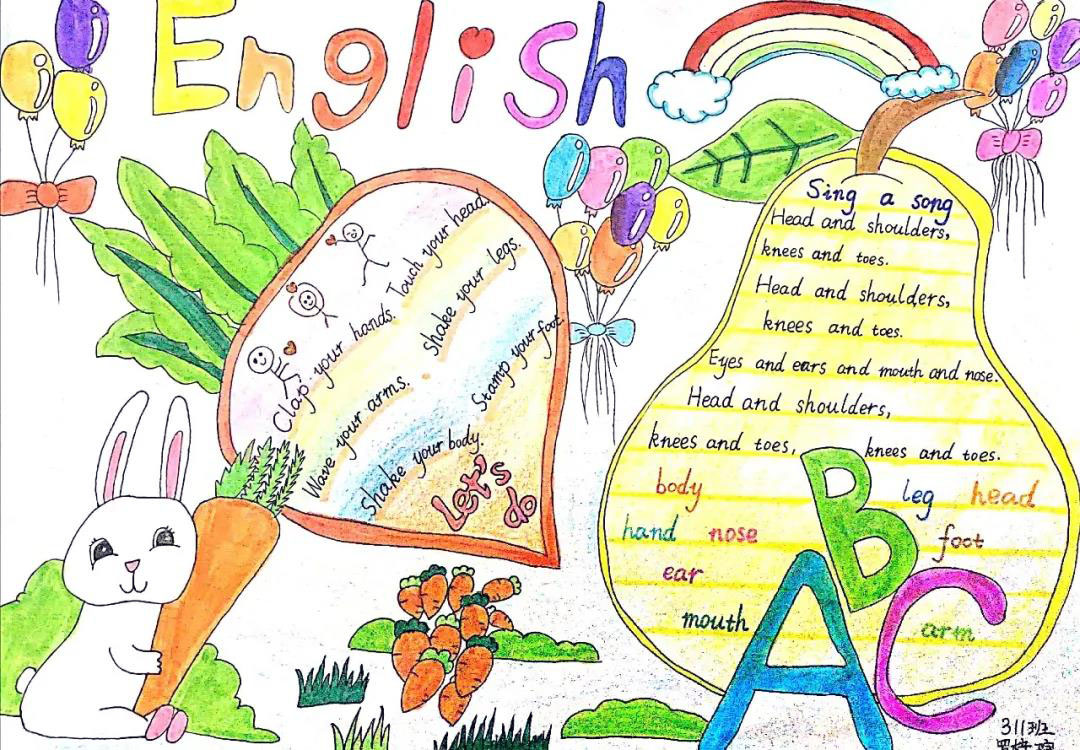 English
Touch your head.
Clap your hands.
Shake your legs.
Wave your arms.
Stamp your foot.
Shake your body.
Let's
do
Sing a song
Head and shoulders,
knees and toes.
Head and shoulders,
knees and toes.
Eyes and ears and mouth and nose.
Head and shoulders,
knees and toes, knees and toes.
body leg head
hand nose foot
ear
mouth arm
A B C
311班